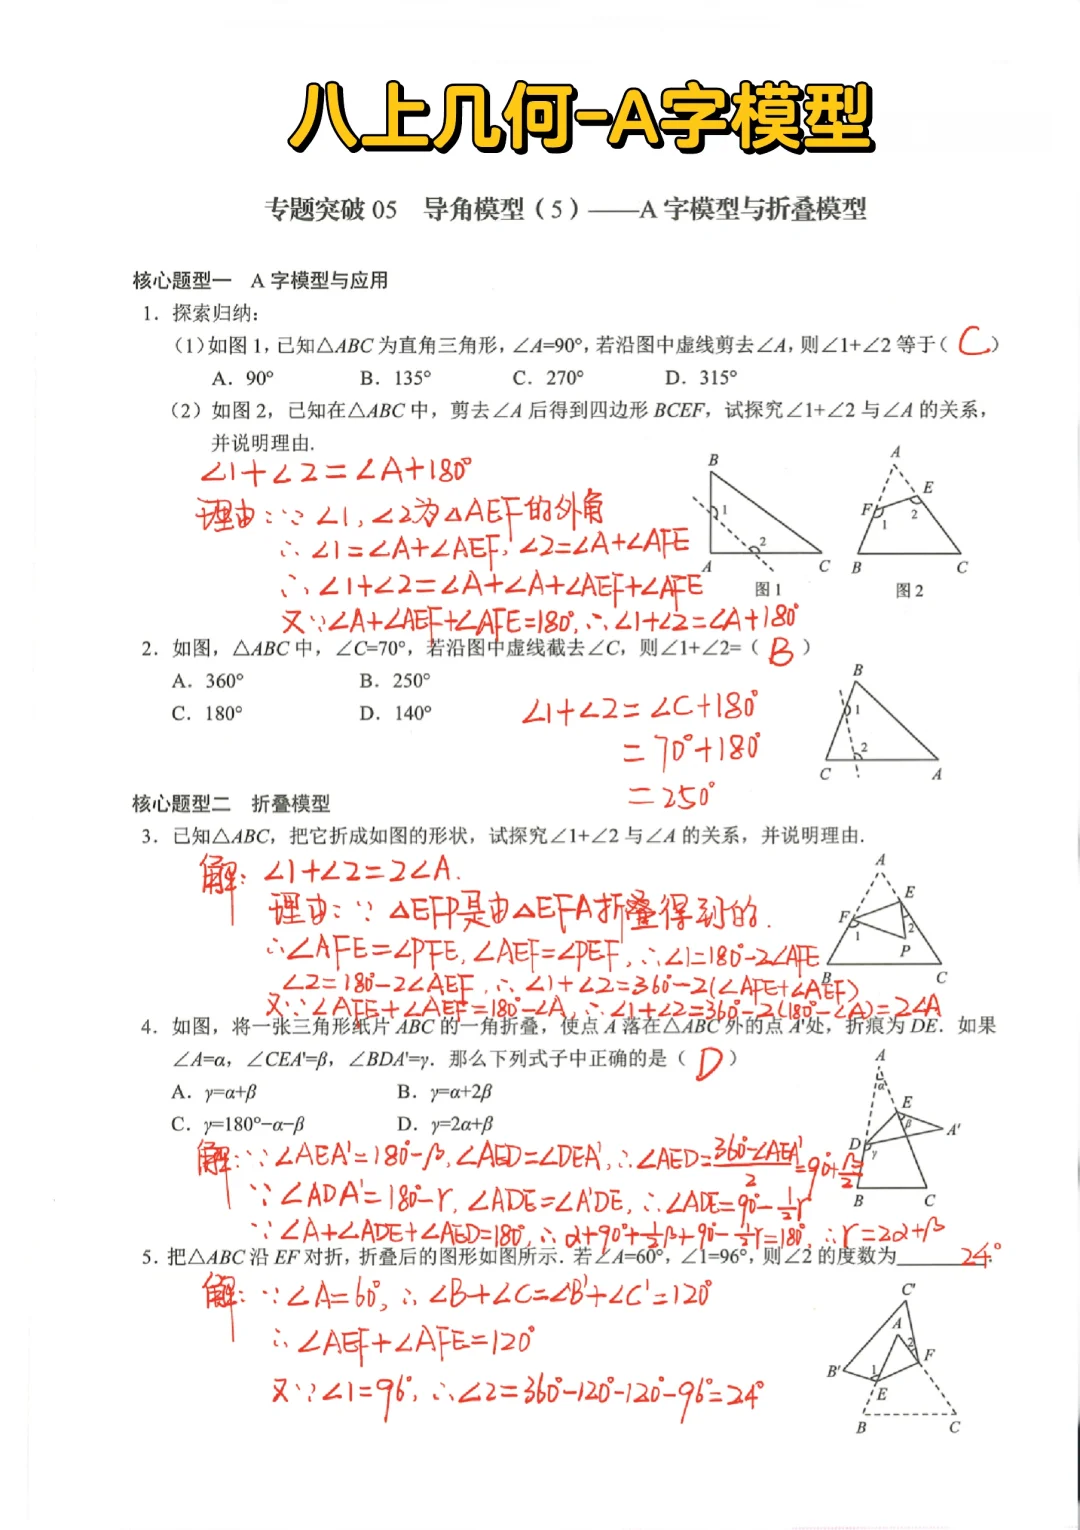 八上几何-A字模型
专题突破 05 导角模型(5)——A 字模型与折叠模型
核心题型一 A 字模型与应用
1. 探索归纳:
(1)如图 1,已知△ABC 为直角三角形,∠A=90°,若沿图中虚线剪去∠A,则∠1+∠2 等于( C )
A. 90° B. 135° C. 270° D. 315°
(2) 如图 2,已知在△ABC 中,剪去∠A 后得到四边形 BCEF,试探究∠1+∠2 与∠A 的关系,
并说明理由.
∠1+∠2=∠A+180°
理由:∵∠1,∠2为△AEF的外角
∴∠1=∠A+∠AEF,∠2=∠A+∠AFE
∴∠1+∠2=∠A+∠A+∠AEF+∠AFE
又∵∠A+∠AEF+∠AFE=180°,∴∠1+∠2=∠A+180°
B 1 2 A C 图 1
A E F 1 2 B C 图 2
2. 如图,△ABC 中,∠C=70°,若沿图中虚线截去∠C,则∠1+∠2=( B )
A. 360° B. 250°
C. 180° D. 140°
∠1+∠2=∠C+180°
=70°+180°
=250°
B 1 2 C A
核心题型二 折叠模型
3. 已知△ABC,把它折成如图的形状,试探究∠1+∠2 与∠A 的关系,并说明理由.
解:∠1+∠2=2∠A.
理由:∵△EFP是由△EFA折叠得到的.
∴∠AFE=∠PFE,∠AEF=∠PEF,∴∠1=180°-2∠AFE
∠2=180°-2∠AEF,∴∠1+∠2=360°-2(∠AFE+∠AEF)
又∵∠AFE+∠AEF=180°-∠A,∴∠1+∠2=360°-2(180°-∠A)=2∠A
A E F 1 2 P B C
4. 如图,将一张三角形纸片 ABC 的一角折叠,使点 A 落在△ABC 外的点 A'处,折痕为 DE. 如果
∠A=α,∠CEA'=β,∠BDA'=γ. 那么下列式子中正确的是( D )
A. γ=α+β B. γ=α+2β
C. γ=180°−α−β D. γ=2α+β
解:∵∠AEA'=180°-β,∠AED=∠DEA',∴∠AED=(360°-∠AEA')/2=90°+β/2
∵∠ADA'=180°-r,∠ADE=∠A'DE,∴∠ADE=90°-1/2r
∵∠A+∠ADE+∠AED=180°,∴α+90°+1/2β+90°-1/2r=180°,∴r=2α+β
A α E β A' D γ B C
5. 把△ABC 沿 EF 对折,折叠后的图形如图所示. 若∠A=60°,∠1=96°,则∠2 的度数为 24° .
解:∵∠A=60°,∴∠B+∠C=∠B'+∠C'=120°
∴∠AEF+∠AFE=120°
又∵∠1=96°,∴∠2=360°-120°-120°-96°=24°
C' A 2 F B' 1 E B C